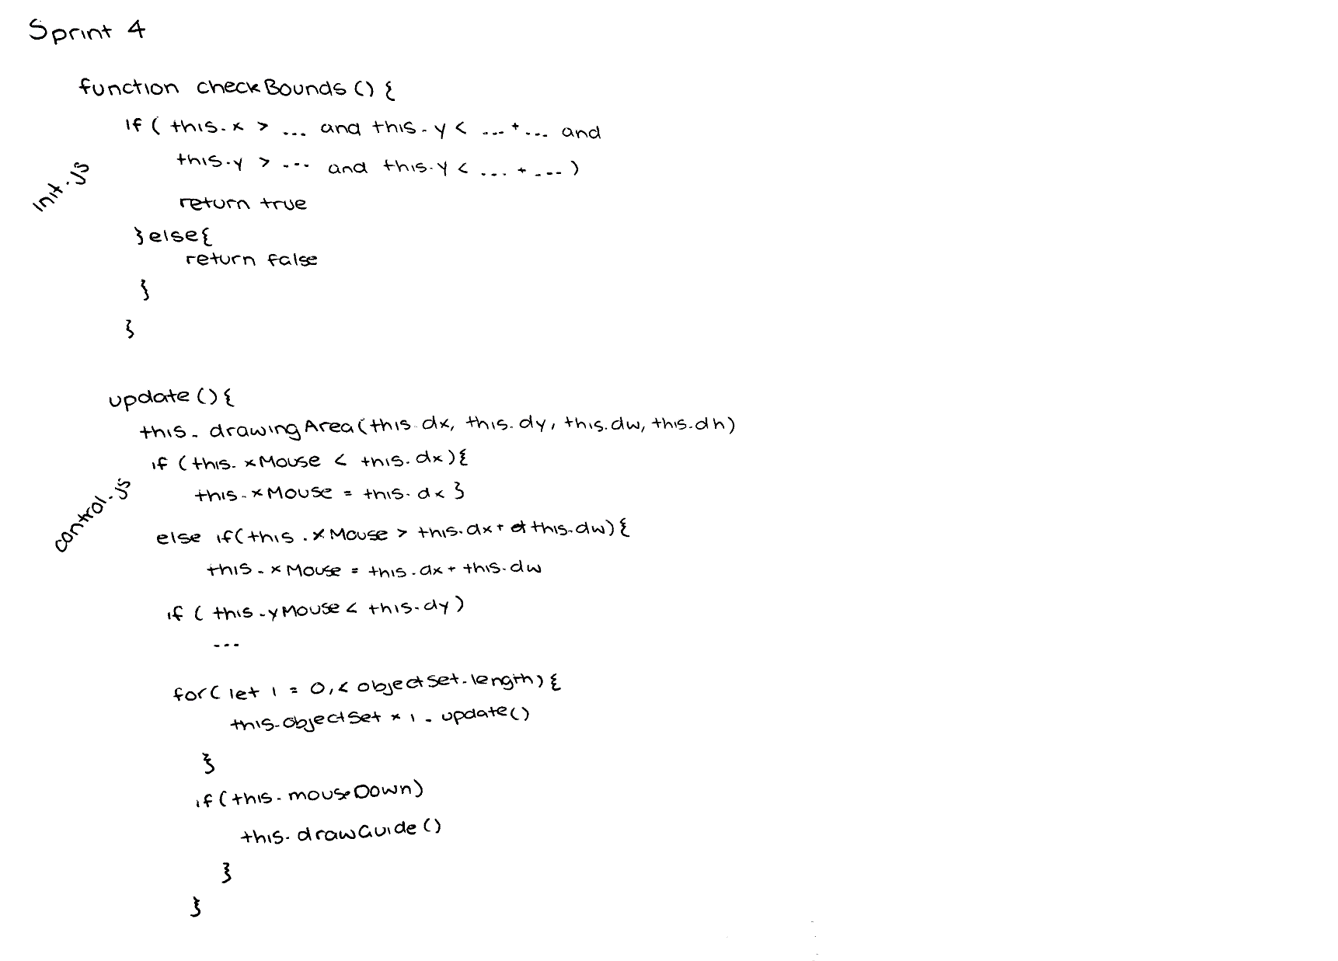 Sprint 4
function checkBounds () {
if ( this.x > ... and this.y < ... + ... and
this.y > ... and this.y < ... + ... )
init.js
return true
} else {
return false
}
}
update () {
this. drawingArea (this.dx, this.dy, this.dw, this.dh)
if (this. xMouse < this.dx) {
this.xMouse = this.dx }
control.js
else if (this.xMouse > this.dx + this.dw) {
this.xMouse = this.dx + this.dw
if ( this.yMouse < this.dy )
...
for ( let i = 0, < objectSet.length) {
this.objectSet * i . update ()
}
if (this.mouseDown)
this.drawGuide ()
}
}